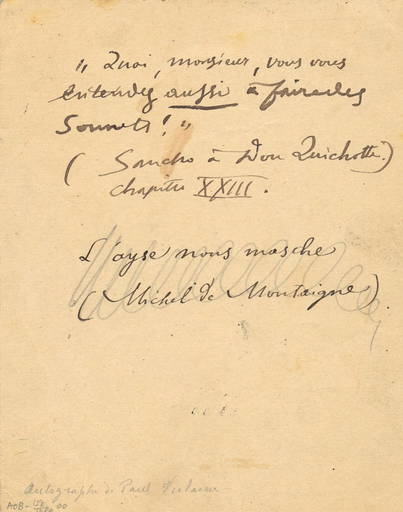 „ Quoi, monsieur, vous vous
entendez aussi à faire des
Sonnets! „
( Sancho à Don Quichotte.)
chapitre XXIII.
L'ayse nous masche
(Michel de Montaigne)
Autographe de Paul Verlaine
AOB-